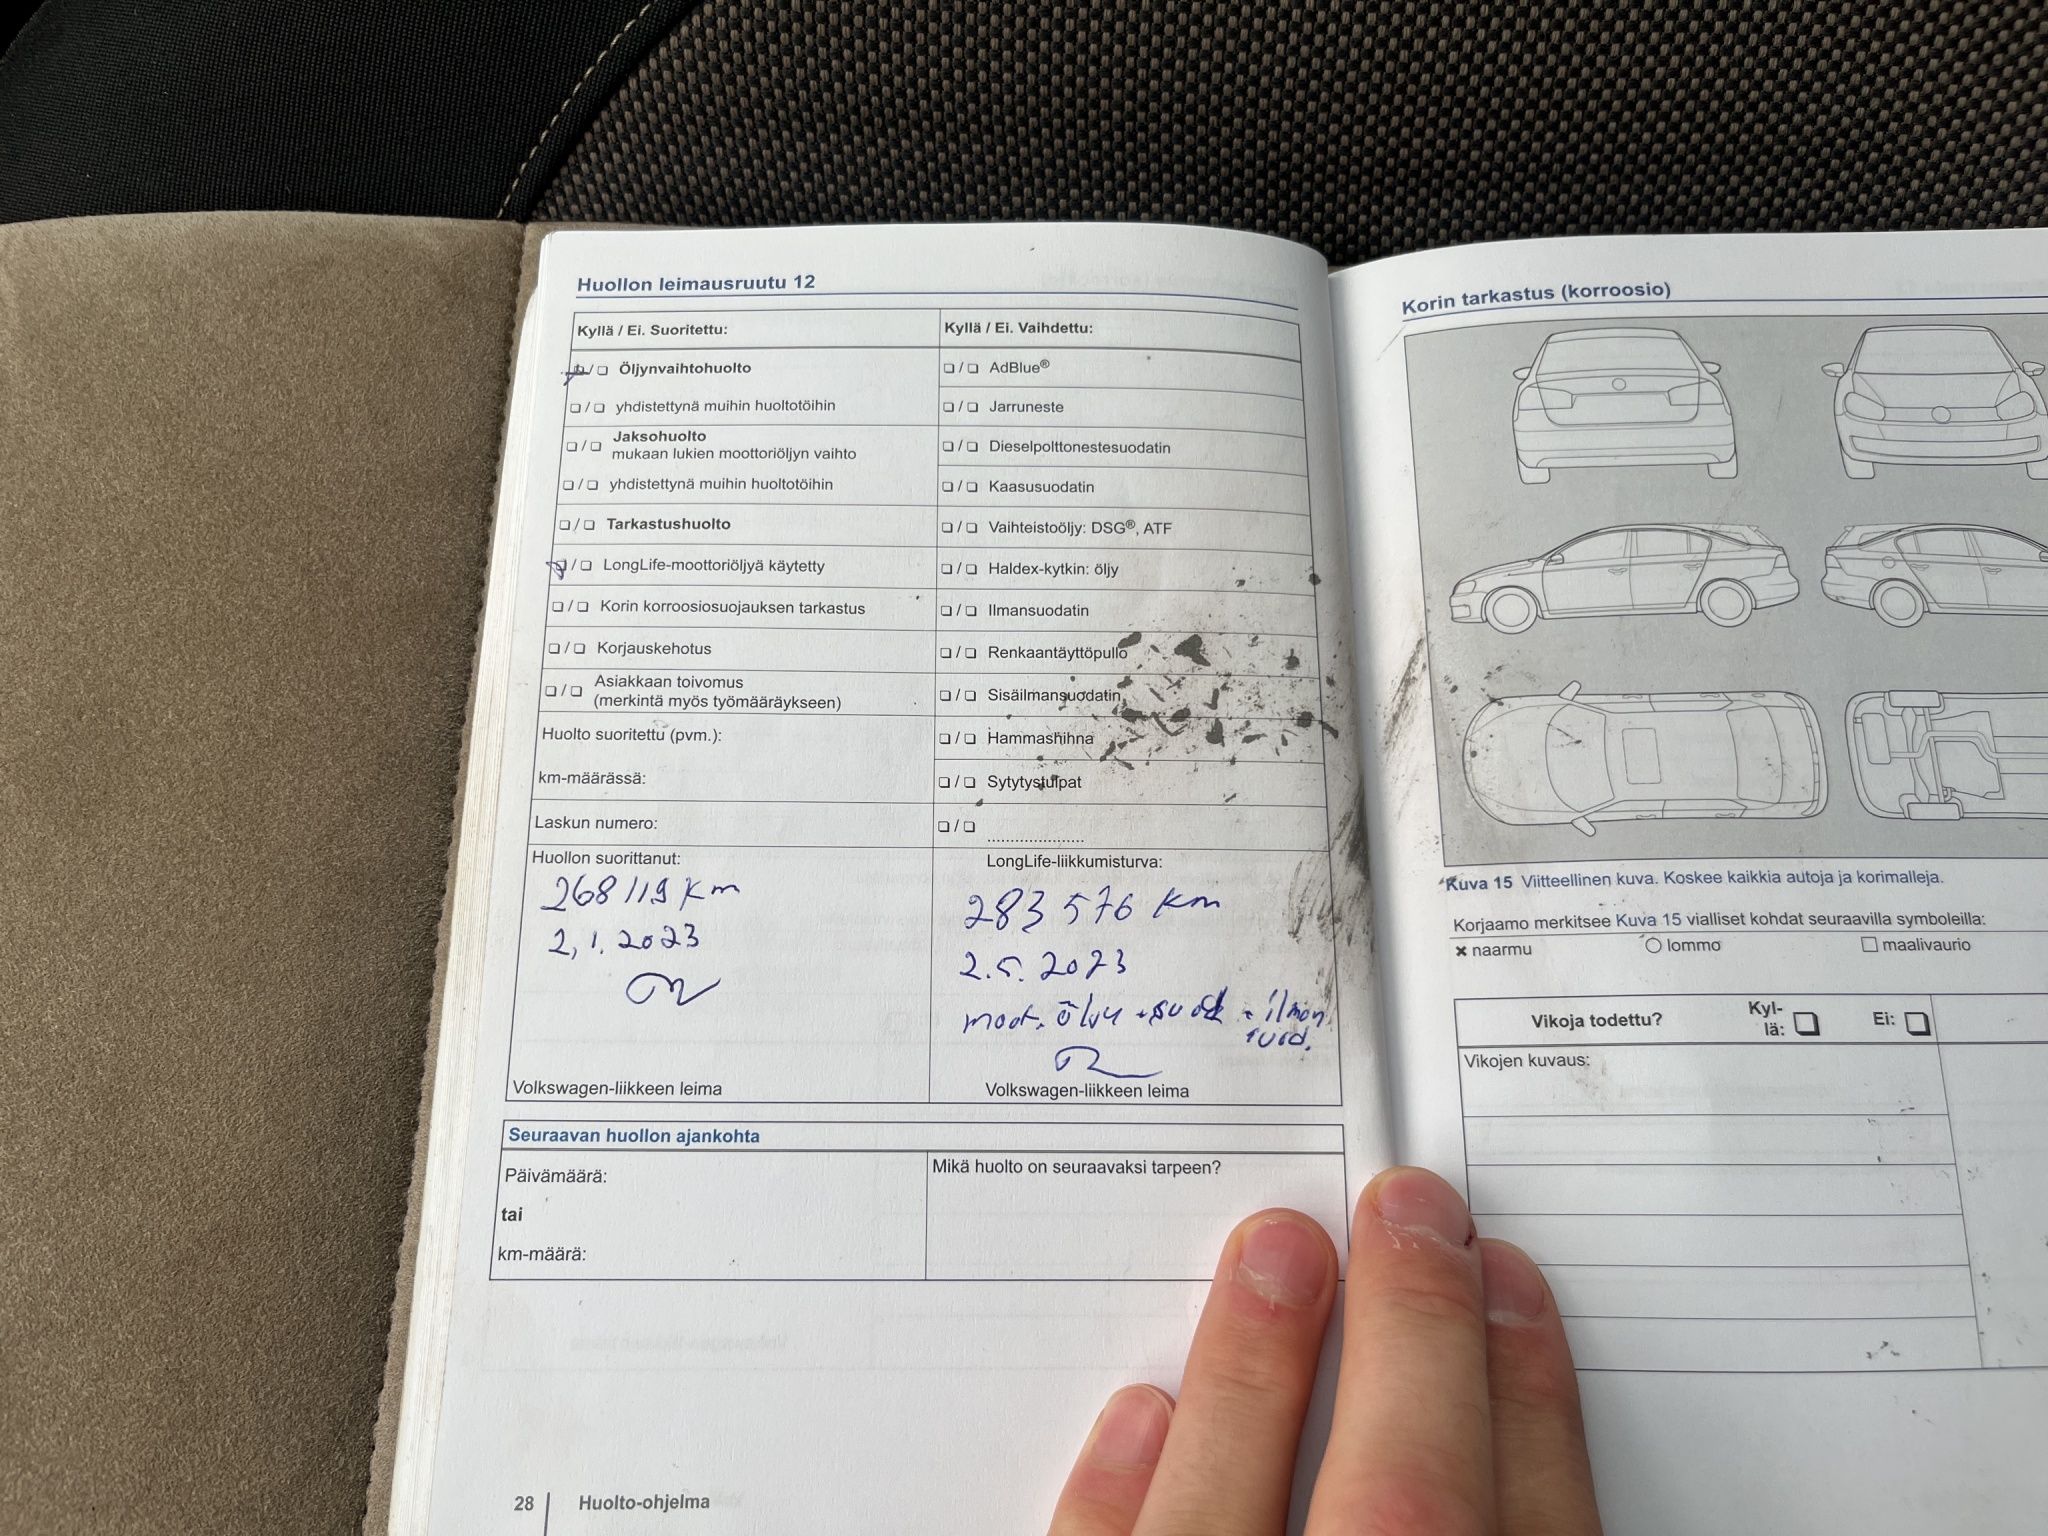 Huollon leimausruutu 12
Kyllä / Ei. Suoritettu:
❏ / ❏ Öljynvaihtohuolto
❏ / ❏ yhdistettynä muihin huoltotöihin
❏ / ❏ Jaksohuolto
mukaan lukien moottoriöljyn vaihto
❏ / ❏ yhdistettynä muihin huoltotöihin
❏ / ❏ Tarkastushuolto
❏ / ❏ LongLife-moottoriöljyä käytetty
❏ / ❏ Korin korroosiosuojauksen tarkastus
❏ / ❏ Korjauskehotus
❏ / ❏ Asiakkaan toivomus
(merkintä myös työmääräykseen)
Huolto suoritettu (pvm.):
km-määrässä:
Laskun numero:
Huollon suorittanut:
268 119 km
2.1.2023
Volkswagen-liikkeen leima
Kyllä / Ei. Vaihdettu:
❏ / ❏ AdBlue®
❏ / ❏ Jarruneste
❏ / ❏ Dieselpolttonestesuodatin
❏ / ❏ Kaasusuodatin
❏ / ❏ Vaihteistoöljy: DSG®, ATF
❏ / ❏ Haldex-kytkin: öljy
❏ / ❏ Ilmansuodatin
❏ / ❏ Renkaantäyttöpullo
❏ / ❏ Sisäilmansuodatin
❏ / ❏ Hammashihna
❏ / ❏ Sytytystulpat
❏ / ❏ .....................
LongLife-liikkumisturva:
283 576 km
2.5.2023
moot. öljy + suod + ilman
suod.
Volkswagen-liikkeen leima
Seuraavan huollon ajankohta
Päivämäärä:
tai
km-määrä:
Mikä huolto on seuraavaksi tarpeen?
28 | Huolto-ohjelma
Korin tarkastus (korroosio)
Kuva 15 Viitteellinen kuva. Koskee kaikkia autoja ja korimalleja.
Korjaamo merkitsee Kuva 15 vialliset kohdat seuraavilla symboleilla:
✖ naarmu ○ lommo □ maalivaurio
Vikoja todettu? Kyl-
lä: ❏ Ei: ❏
Vikojen kuvaus: